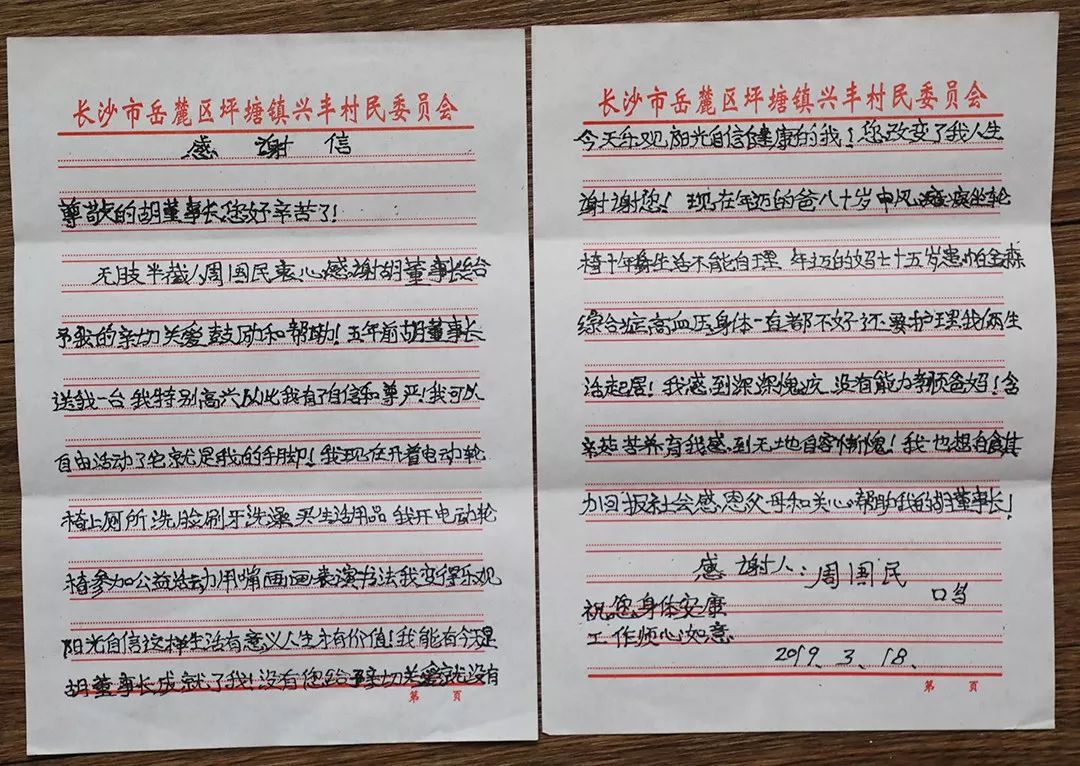 长沙市岳麓区坪塘镇兴丰村民委员会
感谢信
尊敬的胡董事长,您好辛苦了!
无肢半截人周国民衷心感谢胡董事长给
予我的亲切关爱鼓励和帮助!五年前胡董事长
送我一台我特别高兴从此我有了自信和尊严!我可以
自由活动了它就是我的手脚!我现在开着电动轮
椅上厕所洗脸刷牙洗澡买生活用品我开电动轮
椅参加公益活动用嘴画画表演书法我变得乐观
阳光自信这样生活有意义人生才有价值!我能有今天是
胡董事长成就了我!没有您给予亲切关爱就没有
第 页
长沙市岳麓区坪塘镇兴丰村民委员会
今天乐观阳光自信健康的我!您改变了我人生
谢谢您!现在年迈的爸八十岁中风瘫痪坐轮
椅十年生活不能自理 年迈的妈七十五岁患帕金森
综合症高血压身体一直都不好还要护理我俩生
活起居!我感到深深愧疚没有能力孝顺爸妈!含
辛茹苦养育我感到无地自容惭愧!我也想自食其
力回报社会感恩父母和关心帮助我的胡董事长!
感谢人:周国民
口书
祝您身体安康
工作顺心如意
2019.3.18.
第 页